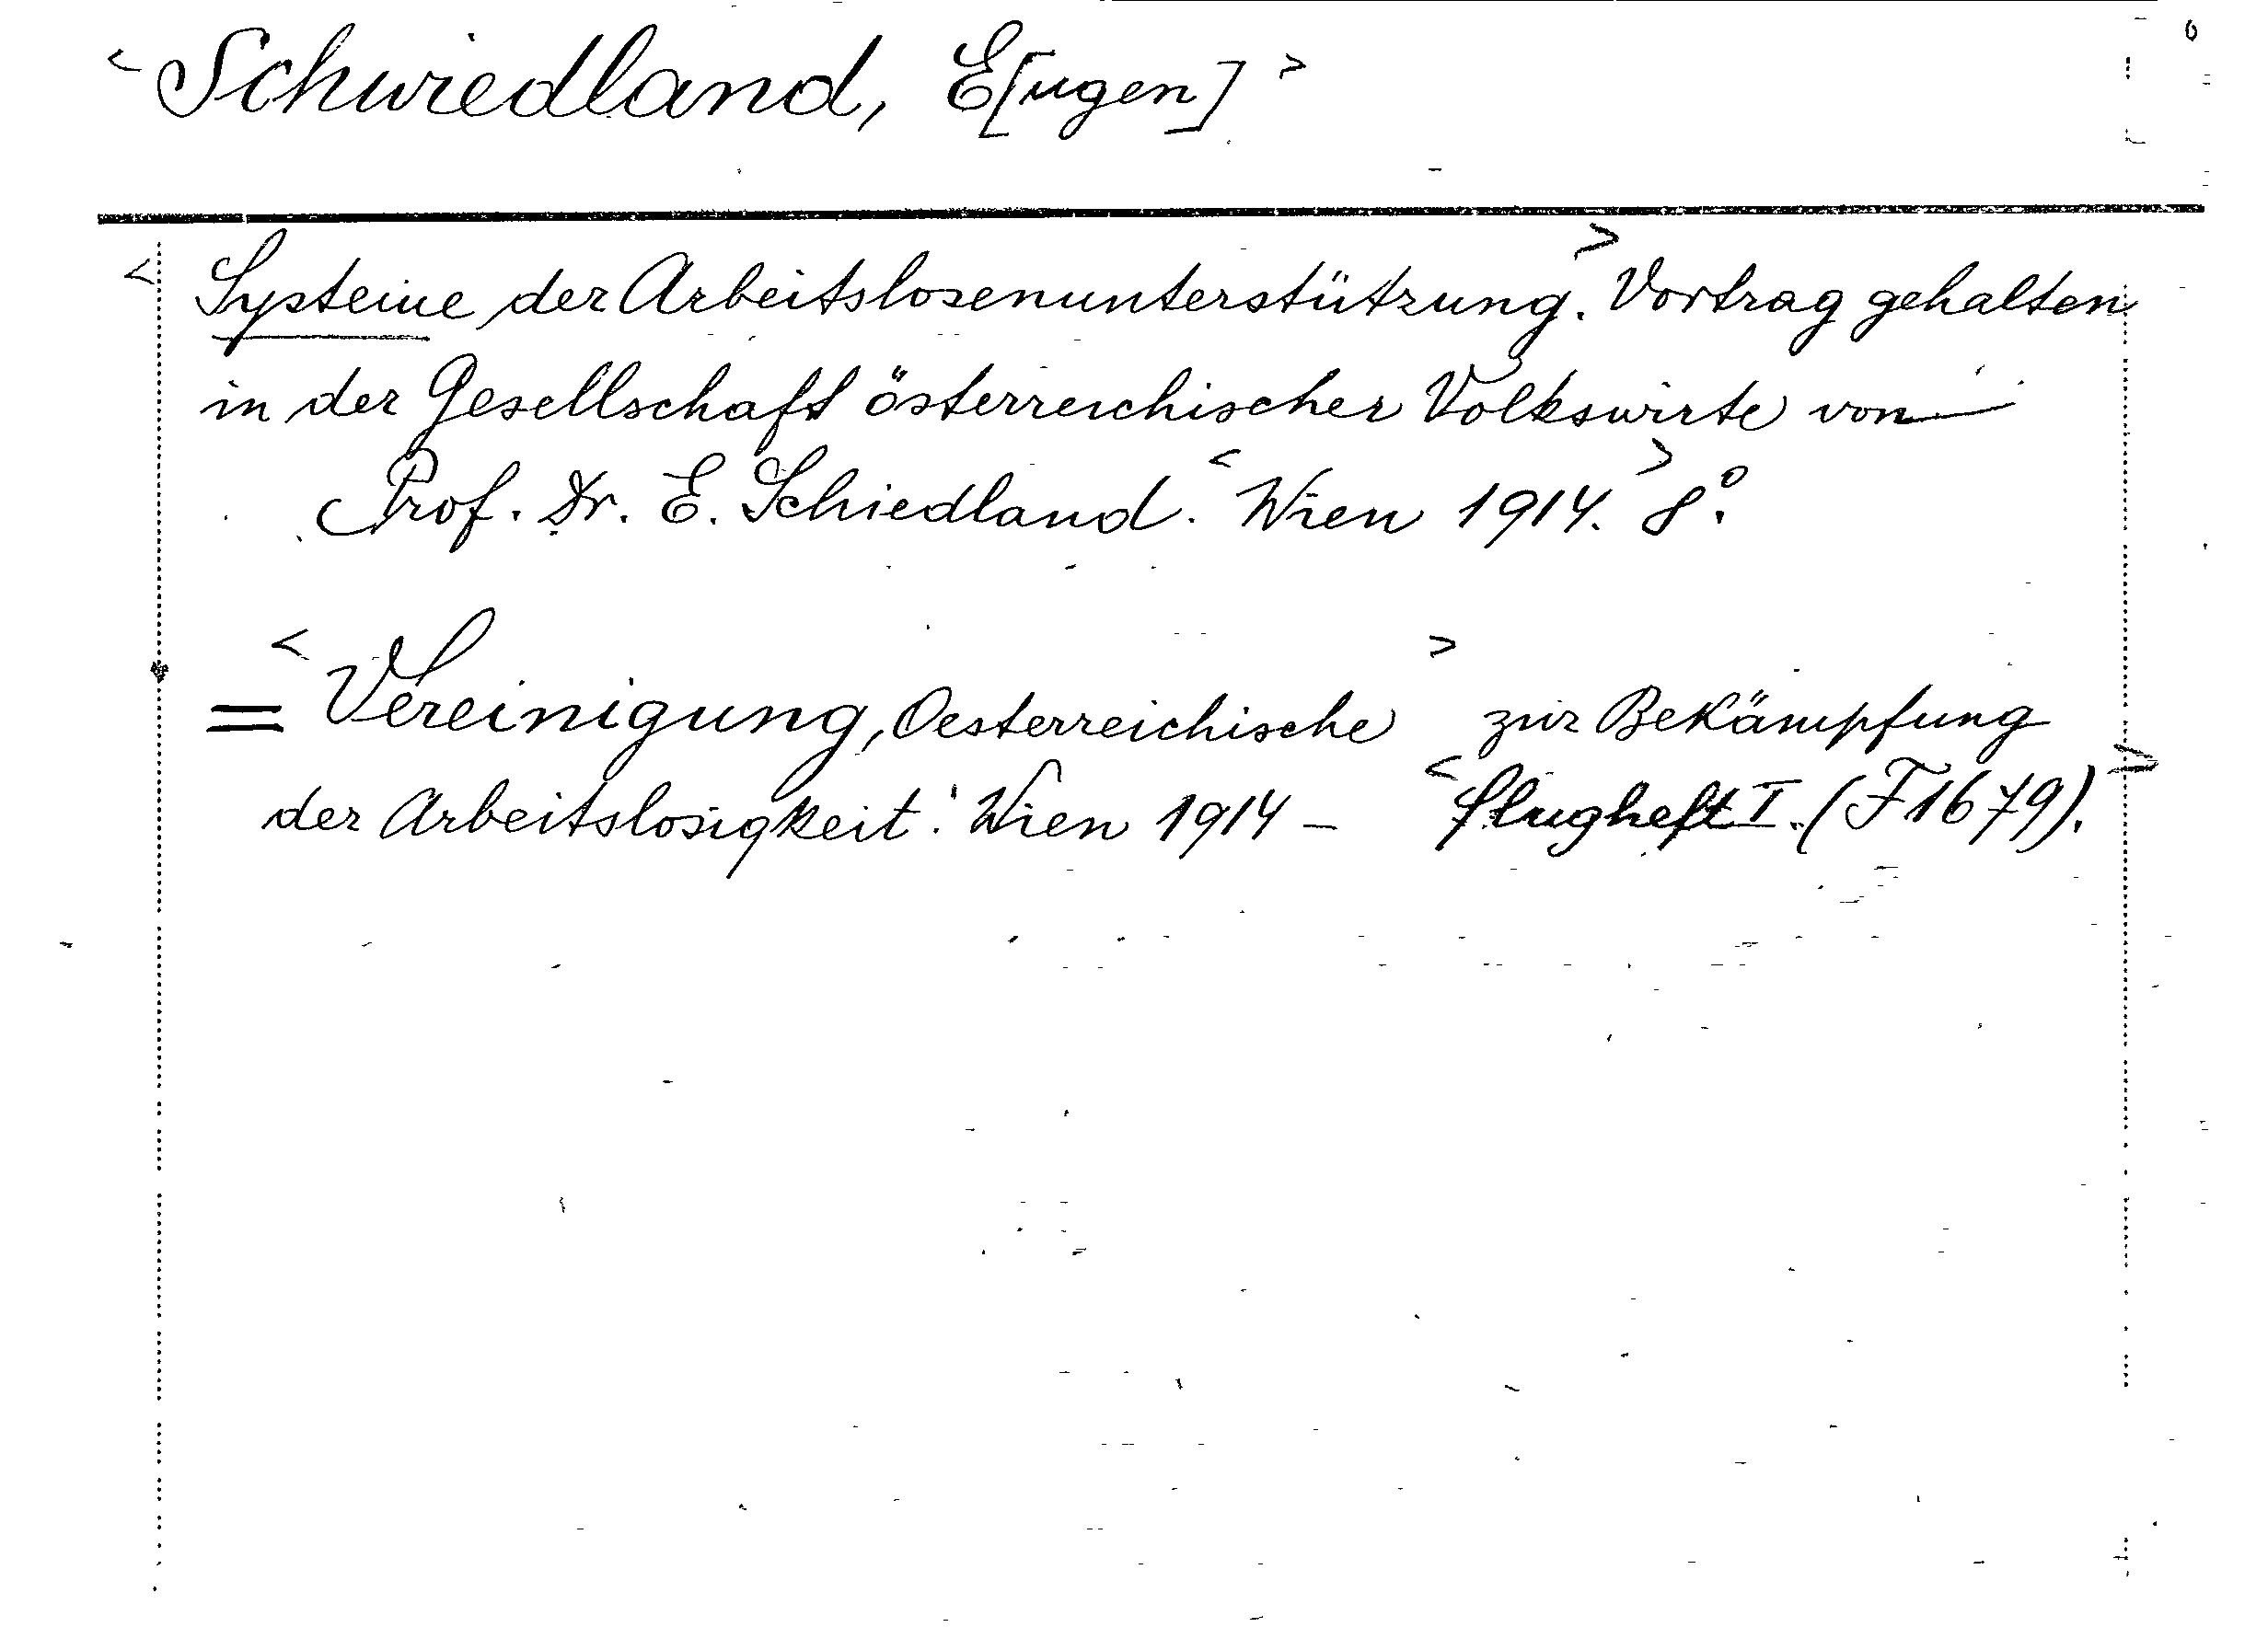 <Schwiedland, E[ugen]>
<Systeme der Arbeitslosenunterstützung.> Vortrag gehalten
in der Gesellschaft österreichischer Volkswirte von
Prof. Dr. E. Schiedland. <Wien 1914.> 8°.
= <Vereinigung, Oesterreichische> zur Bekämpfung
der Arbeitslosigkeit. Wien 1914 – <Flugheft I. (F1679).>